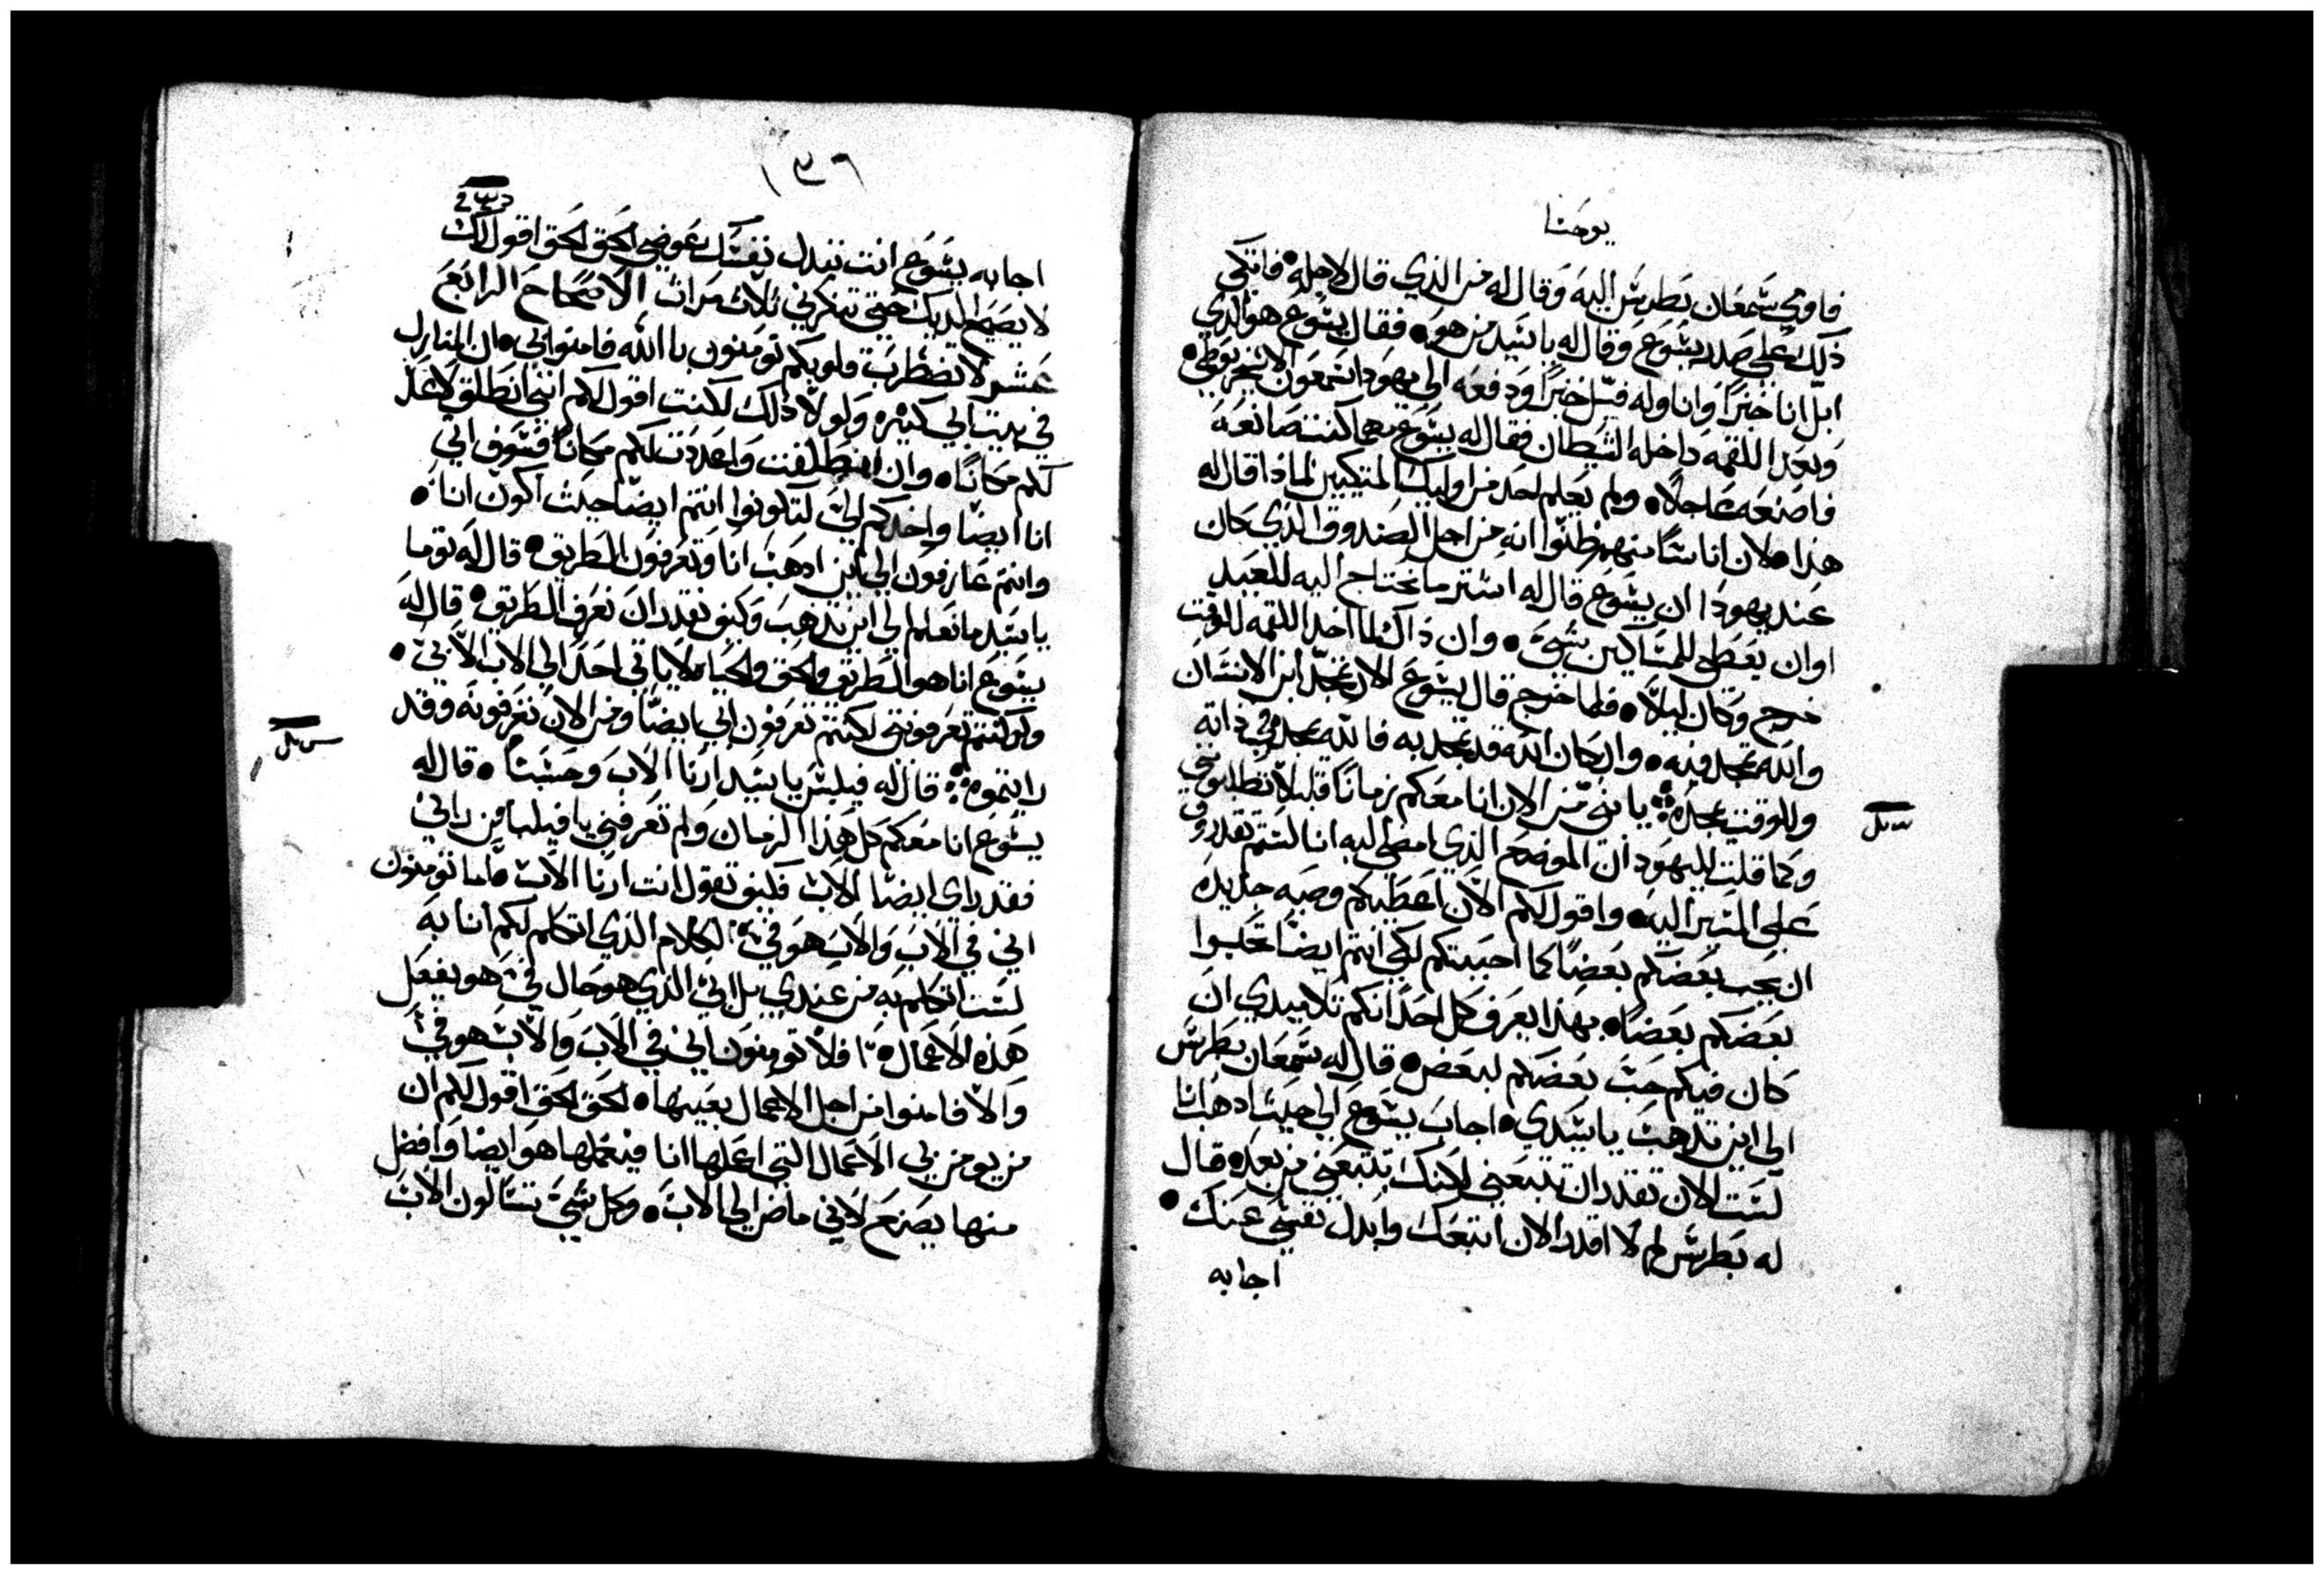 يوحنا
فاومي سمعان بطرس اليه وقال له من الذي قال لاجله • فاتكي
ذلك علي صدر يسوع وقال له يا سيد من هو • فقال يسوع هو الذي
ابل انا خبزًا واناوله فبل خبزًا ودفعه الي يهودا سمعون الاسخريوطي •
وبعد اللقمه داخله الشيطان فقال له يسوع مهما كنت صانعه
فاصنعه عاجلًا • ولم يعلم احد من اوليك المتكيين لماذا قال له
هذا • لان اناسًا منهم ظنوا انه من اجل الصندوق الذي كان
عند يهودا ان يسوع قال له اشتر ما نحتاج اليه للعيد
اوان يعطي للمساكين شي • وان ذاك لما اخد اللقمه للوقت
خرج وكان ليلًا • فلما خرج قال يسوع الان تمجد ابن الانسان
والله تمجد فيه • وان كان الله قد تمجد به فالله يمجده في ذاته
وللوقت يمجده ؞ يا بني من الان انا معكم زمانًا قليلًا تطلبوني
وكما قلت لليهود ان الموضع الذي امضي اليه انا لستم تقدرون
علي المسير اليه • واقول لكم الان اعطيكم وصيه جديده
ان يحب بعضكم بعضًا كما احببتكم لكي انتم ايضًا تحبوا
بعضكم بعضًا • بهذا يعرف كل احد انكم تلاميدي ان
كان فيكم حب بعضكم لبعض • قال له سمعان بطرس
الي اين تدهب يا سيدي • اجاب يسوع الي حيث ادهب انا
لست الان تقدر ان تتبعني لكنك تتبعني من بعد • قال
له بطرس لم لا اقدر الان اتبعك وابدل نفسي عنك •
اجابه
١٣٦
اجابه يسوع انت تبدل نفسك عوضي الحق الحق اقول لك
لا يصيح الديك حتي تنكرني ثلاث مرات الاصحاح الرابع
عشر لا تضطرب قلوبكم تومنون بالله فامنوا بي • ان المنازل
في بيت ابي كثيره ولولا ذلك لكنت اقول لكم انني انطلق لاعد
لكم مكانًا • وان انطلقت واعددت لكم مكانًا فسوف اتي
انا ايضًا واخدكم الي لتكونوا انتم ايضًا حيث اكون انا •
وانتم عارفون الي اين ادهب انا وتعرفون الطريق • قال له توما
يا سيد ما نعلم الي اين تدهب وكيف نقدر ان نعرف الطريق • قال له
يسوع انا هو الطريق والحق والحياه لا ياتي احد الي الاب الا بي •
ولو كنتم تعرفونني لكنتم تعرفون ابي ايضًا ومن الان تعرفونه وقد
رايتموه ؞ قال له فيلبس يا سيد ارنا الاب وحسبنا • قال له
يسوع انا معكم كل هذا الزمان ولم تعرفني يا فيلبا من راني
فقد راي ايضا الاب فكيف تقول انت ارنا الاب • اما تومنون
اني في الاب والاب هو في ؞ الكلام الذي اتكلم لكم انا به
لست اتكلم به من عندي بل ابي الذي هو حال في هو يفعل
هذه الاعمال • افلا تومنون اني في الاب والاب هو في
والا فامنوا من اجل الاعمال بعينها • الحق الحق اقول لكم ان
من يومن بي الاعمال التي اعملها انا فيعملها هو ايضا وافضل
منها يصنع لاني ماض الي الاب • وكل شي تسالون الاب